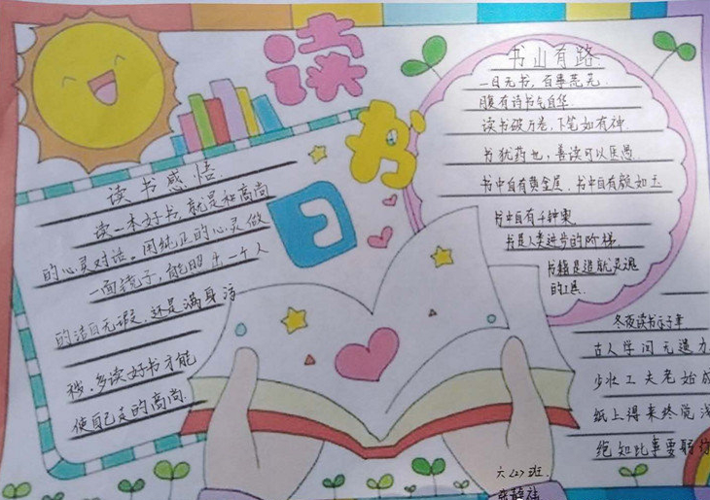 读书日
读书感悟
读一本好书,就是和高尚
的心灵对话。用纯正的心灵做
一面镜子,能照出一个人
的洁白无瑕,还是满身污
秽。多读好书才能
使自己变的高尚
书山有路
一日无书,百事荒芜.
腹有诗书气自华
读书破万卷,下笔如有神
书犹药也,善读可以医愚
书中自有黄金屋,书中自有颜如玉
书中自有千钟粟
书是人类进步的阶梯
书籍是造就灵魂
的工具.
冬夜读书示子聿
古人学问无遗力
少壮工夫老始成
纸上得来终觉浅
绝知此事要躬
六(2)班